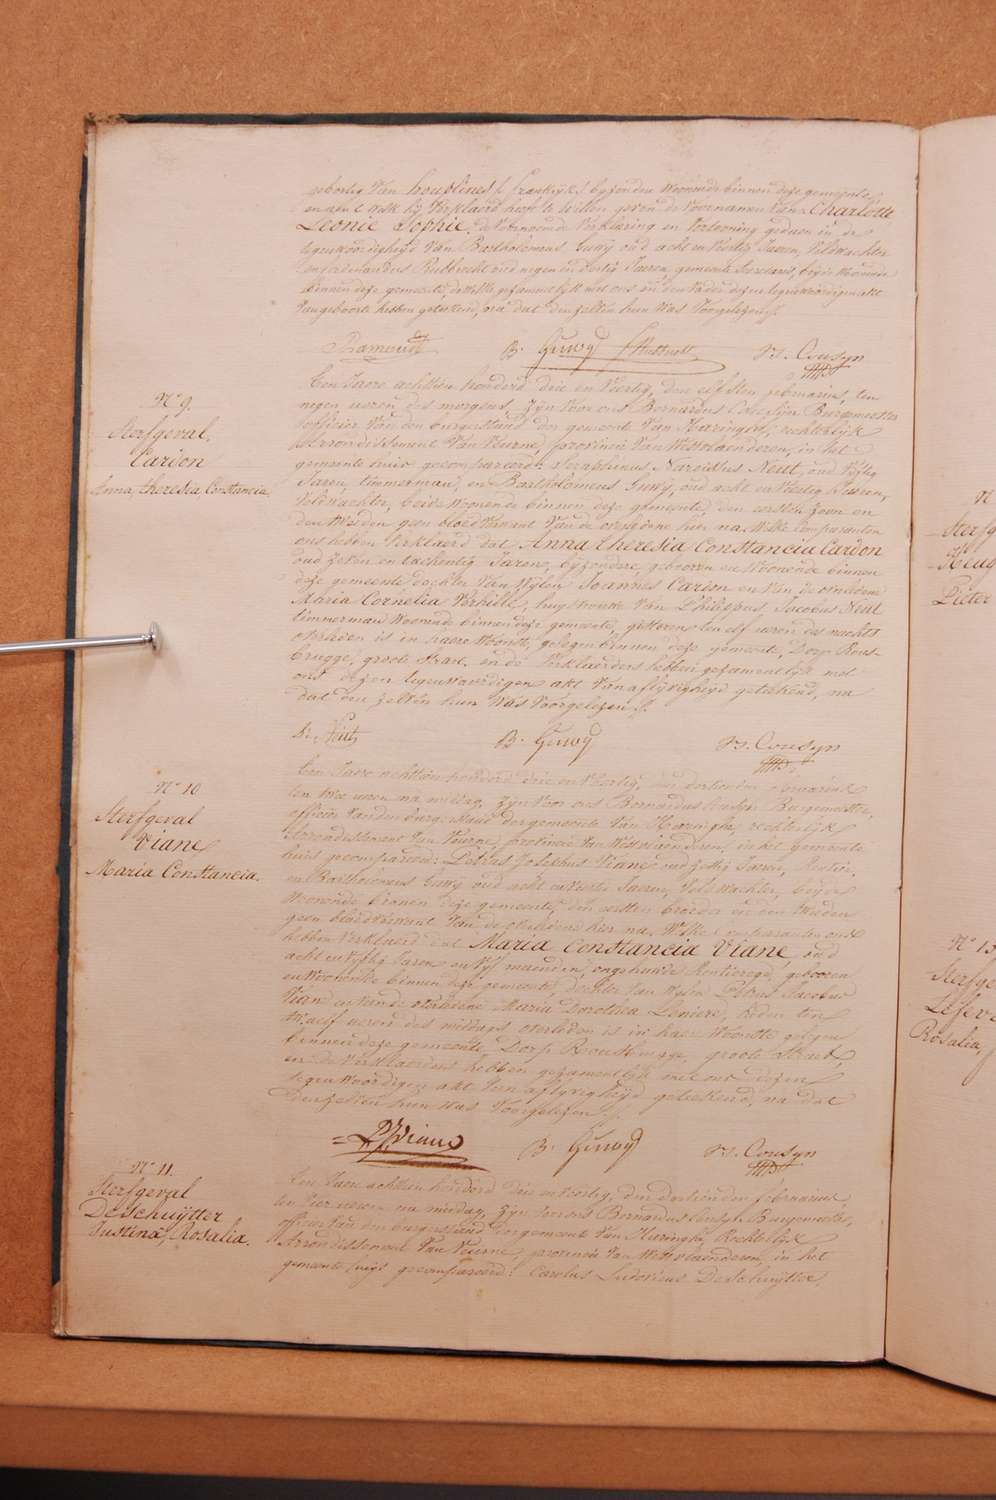 geboortig Van houplines (frankryk) byzonder Woonende binnen deze gemeente,
en aen t welk hy Verklaerd heeft te Willen geven de Voornamen Van Charlotte
Leonie Sophie. de Verklaring en Vertooning gedaen in de
tegenwoordigheyd Van Bartholomeus Guwy oud acht en Veertig Jaeren, Veldwachter
en ferdinandus oud negen en dertig Jaeren, gemeente Secretaris, beyde Woonende
binnen deze gemeente, de Welke gezamentlyk met ons en den Vader dezen tegenwoordigen akt
Van geboorte hebben geteekend, na dat den zelven hun Was Voorgelezen.
B. Guwy B. Cousyn
N.º 9.
Sterfgeval
Cardon
Anna, theresia Constancia,
Een Jaere achttien honderd drie en Veertig, den elfsten februarius, ten
negen uren des morgens, zyn Voor ons Bernardus Cousyn Burgemeester
officier Van den burgerstand der gemeente Van Haringhe, rechterlyk
Arrondissement Van Veurne, provincie Van Westvlaenderen, in het
gemeente huis gecompareerd: Seraphinus Narcissus Neut, oud Vyftig
Jaeren, timmerman, en Bartholomeus Guwy, oud acht en Veertig Jaeren,
Veldwachter, beide Woonende binnen deze gemeente, den eersten Zoon en
den tweeden geen bloedverwant Van de overledene hier na. Welke Comparanten
ons hebben Verklaerd dat Anna theresia Constancia Cardon
oud zeven en tachentig Jaeren, byzondere, gebooren en Woonende binnen
deze gemeente dochter Van Wylen Joannes Cardon en Van de overledene
Maria Cornelia Verhille, huysvrouw Van Philippus Jacobus Neut
timmerman Woonende binnen deze gemeente, gisteren ten elf uren des nachts
overleden is in haere Woonste, gelegen binnen deze gemeente, Dorp Rous-
brugge, groote Straet, en de Verklaerders hebben gezamentlyk met
ons dezen tegenwoordigen akt Van aflyvigheyd geteekend, na
dat den zelven hun Was Voorgelezen.
S. N. Neut B. Guwy B. Cousyn
N.º 10
Sterfgeval
Viane
Maria Constancia.
Een Jaere achttien honderd drie en Veertig, den dertienden februarius
ten twee uren na middag, zyn Voor ons Bernardus Cousyn Burgemeester,
officier Van den burgerstand der gemeente Van Haringhe, rechterlyk
Arrondissement Van Veurne, provincie Van Westvlaenderen, in het gemeente
huis gecompareerd: Petrus Josephus Viane oud zestig Jaeren, Rentier,
en Bartholomeus Guwy oud acht en Veertig Jaeren, Veldwachter, beyde
Woonende binnen deze gemeente, den eersten broeder en den tweeden
geen bloedverwant Van de overledene hier na. Welke Comparanten ons
hebben Verklaerd dat Maria Constancia Viane, oud
acht en Vyftig Jaeren en Vyf maenden, ongehuwde Rentierege, gebooren
en Woonende binnen deze gemeente, dochter Van Wylen Petrus Jacobus
Viane en Van de overledene Maria Dorothea Leniere, heden ten
twaelf uren des middags overleden is in haer Woonste gelegen
binnen deze gemeente, Dorp Rousbrugge, groote Straet,
en de Verklaerders hebben gezamentlyk met ons dezen
tegenwoordigen akt Van aflyvigheyd geteekend, na dat
den zelven hun Was Voorgelezen.
P. J. Viane B. Guwy B. Cousyn
N.º 11.
Sterfgeval
Deschuÿtter
Justina, Rosalia.
Een Jaere achttien honderd drie en Veertig, den dertienden februarius
ten Vier uren na middag, zyn Voor ons Bernardus Cousyn Burgemeester,
officier Van den burgerstand der gemeente Van Haringhe, Rechterlyk
Arrondissement Van Veurne, provincie Van Westvlaenderen, in het
gemeente huys gecompareerd: Carolus Ludovicus Deschuÿtter,
Pieter
N.º 13
Rosalia,